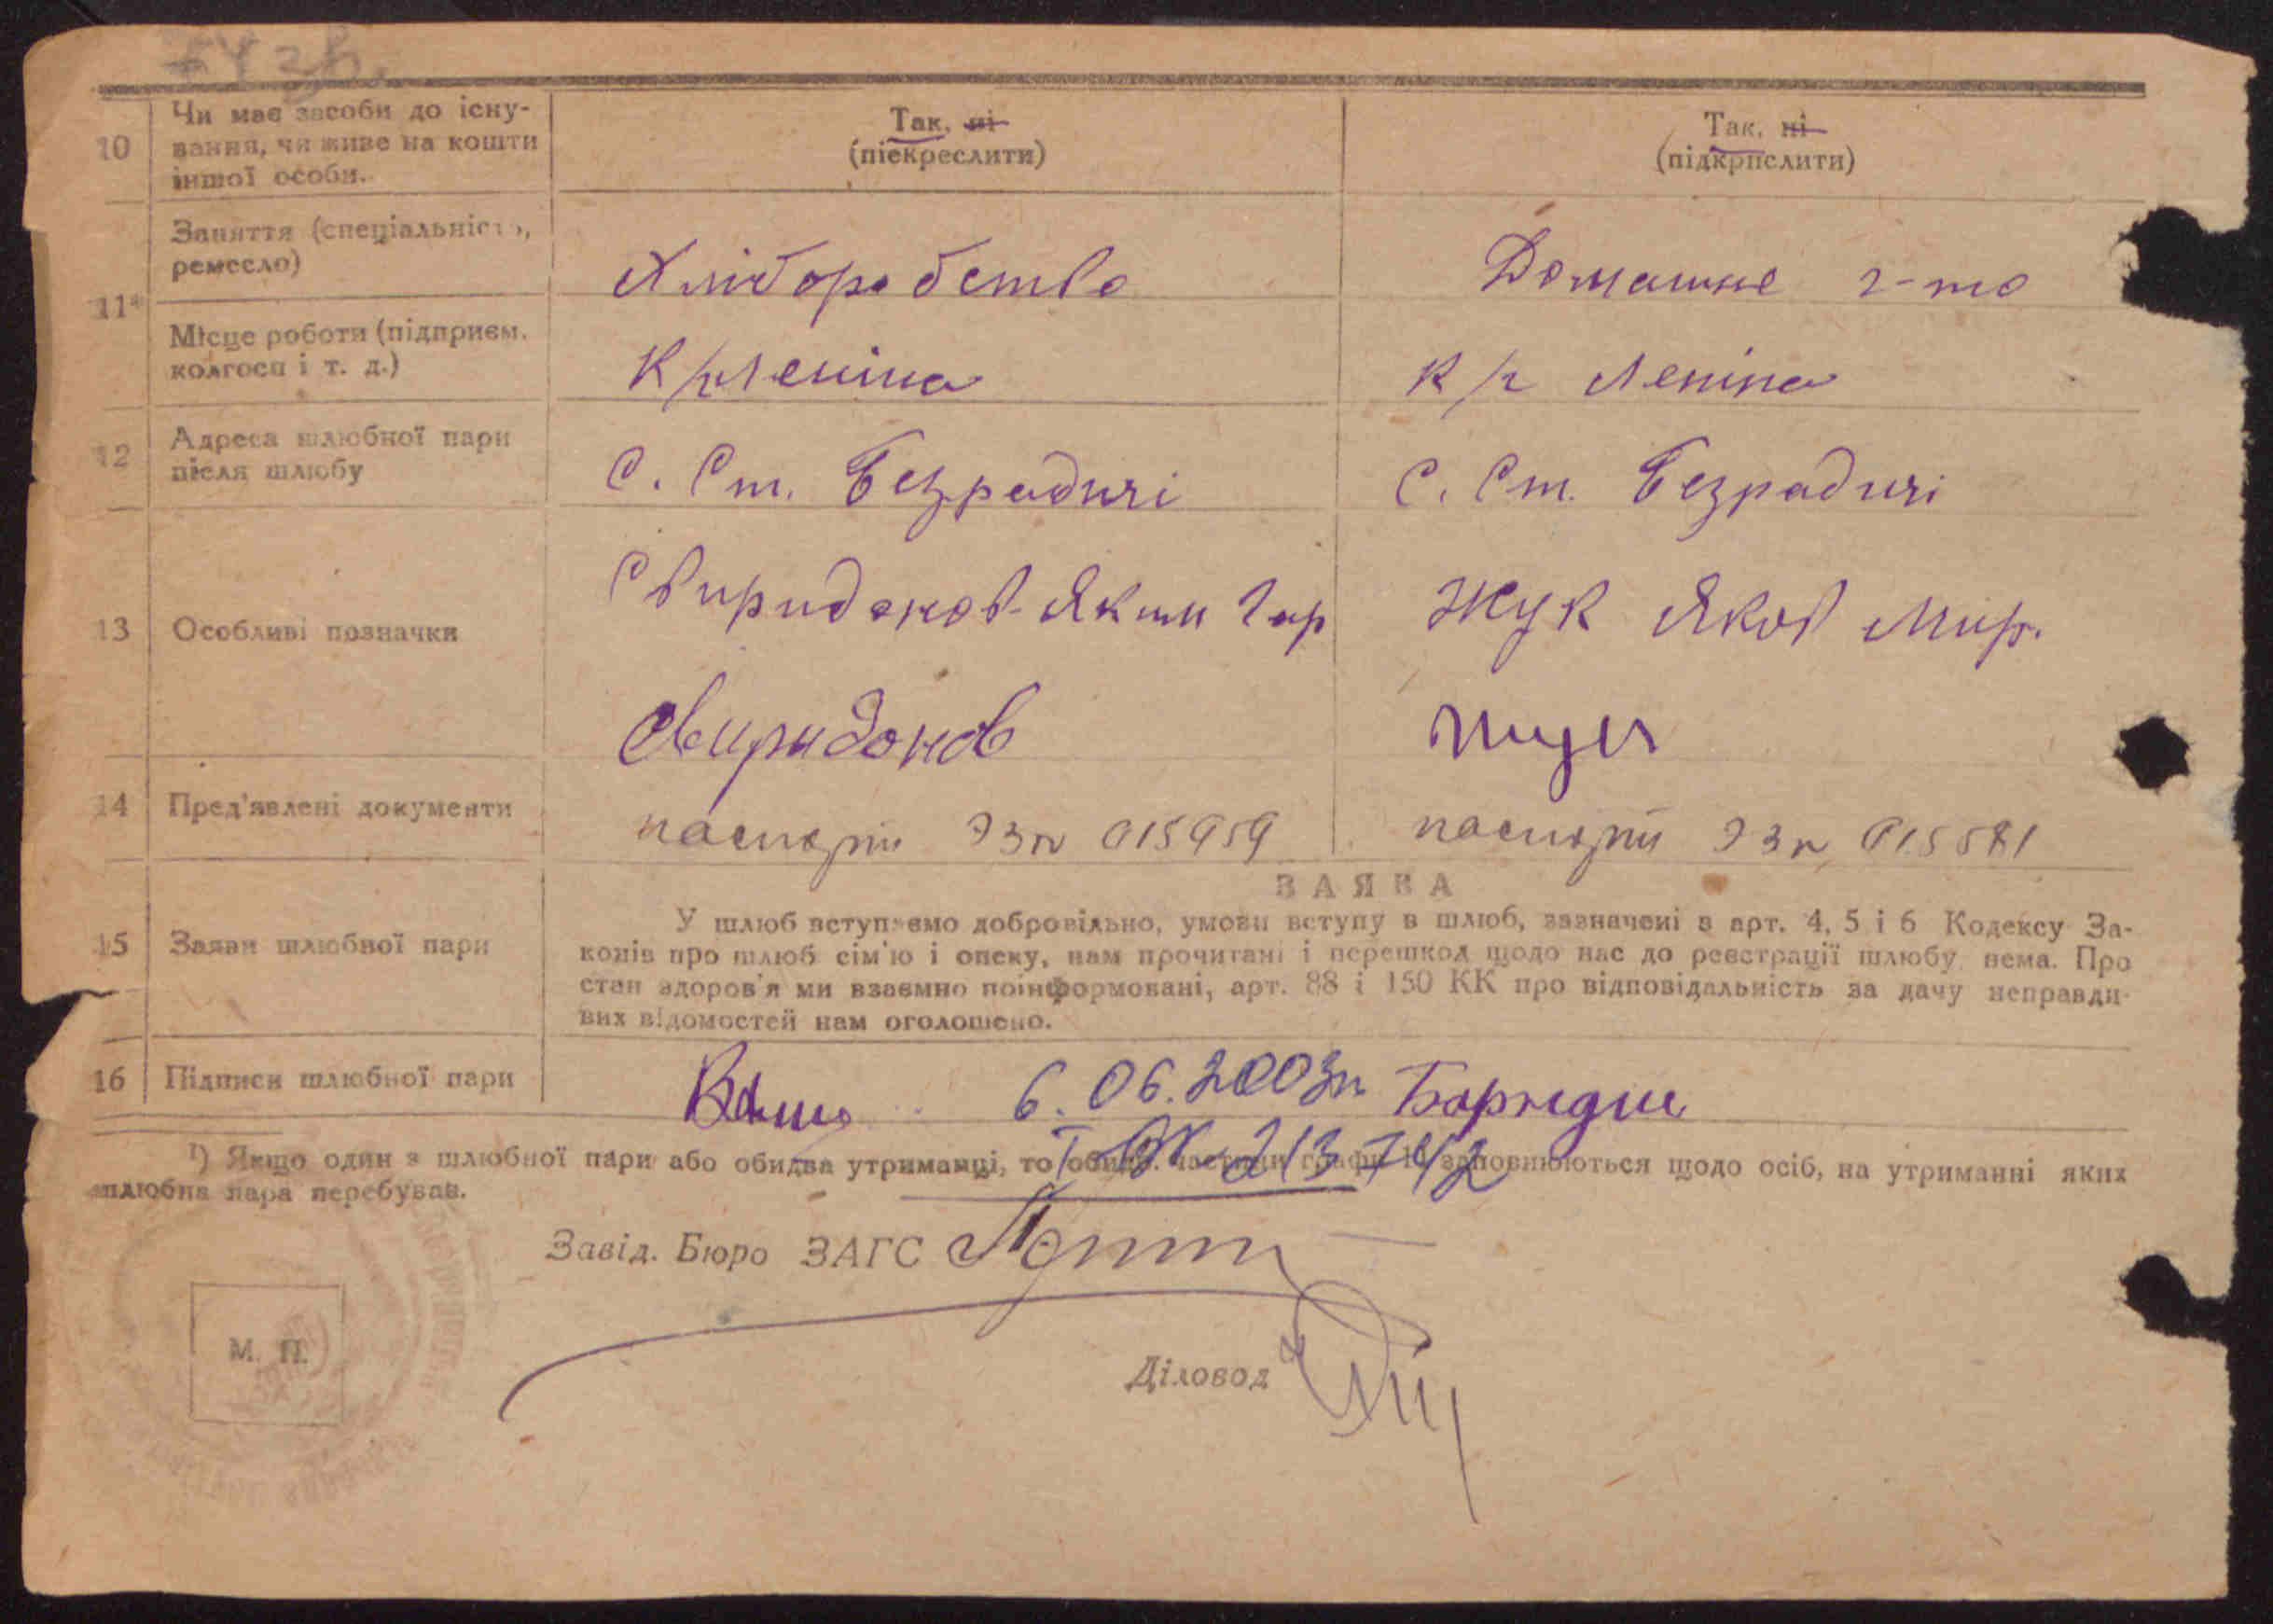 10 Чи має засоби до існу-
вання, чи живе на кошти
іншої особи.
Так, ні
(піекреслити)
Так, ні
(підкрпслити)
11 Заняття (спеціальність,
ремесло)
Хліборобство
Домашнє г-то
Місце роботи (підприєм.
колгосп і т. д.)
К/г Леніна
К/г Леніна
12 Адреса шлюбної пари
після шлюбу
С. Ст. Безрадичі
С. Ст. Безрадичі
13 Особливі позначки
Свиридонов Яким Гар
Жук Яков Мир.
Свиридонов
14 Пред'явлені документи
паспорт 015959
паспорт 015581
15 Заяви шлюбної пари
ЗАЯВА
У шлюб вступаємо добровільно, умови вступу в шлюб, зазначені в арт. 4, 5 і 6 Кодексу За-
конів про шлюб сім'ю і опеку, нам прочитані і перешкод щодо нас до реєстрації шлюбу нема. Про
стан здоров'я ми взаємно поінформовані, арт. 88 і 150 КК про відповідальність за дачу неправди-
вих відомостей нам оголошено.
16 Підписи шлюбної пари
6.06.2003р.
213742
¹) Якщо один з шлюбної пари або обидва утриманці, то обидві частини графи заповнюються щодо осіб, на утриманні яких
шлюбна пара перебуває.
Завід. Бюро ЗАГС
М. П.
Діловод